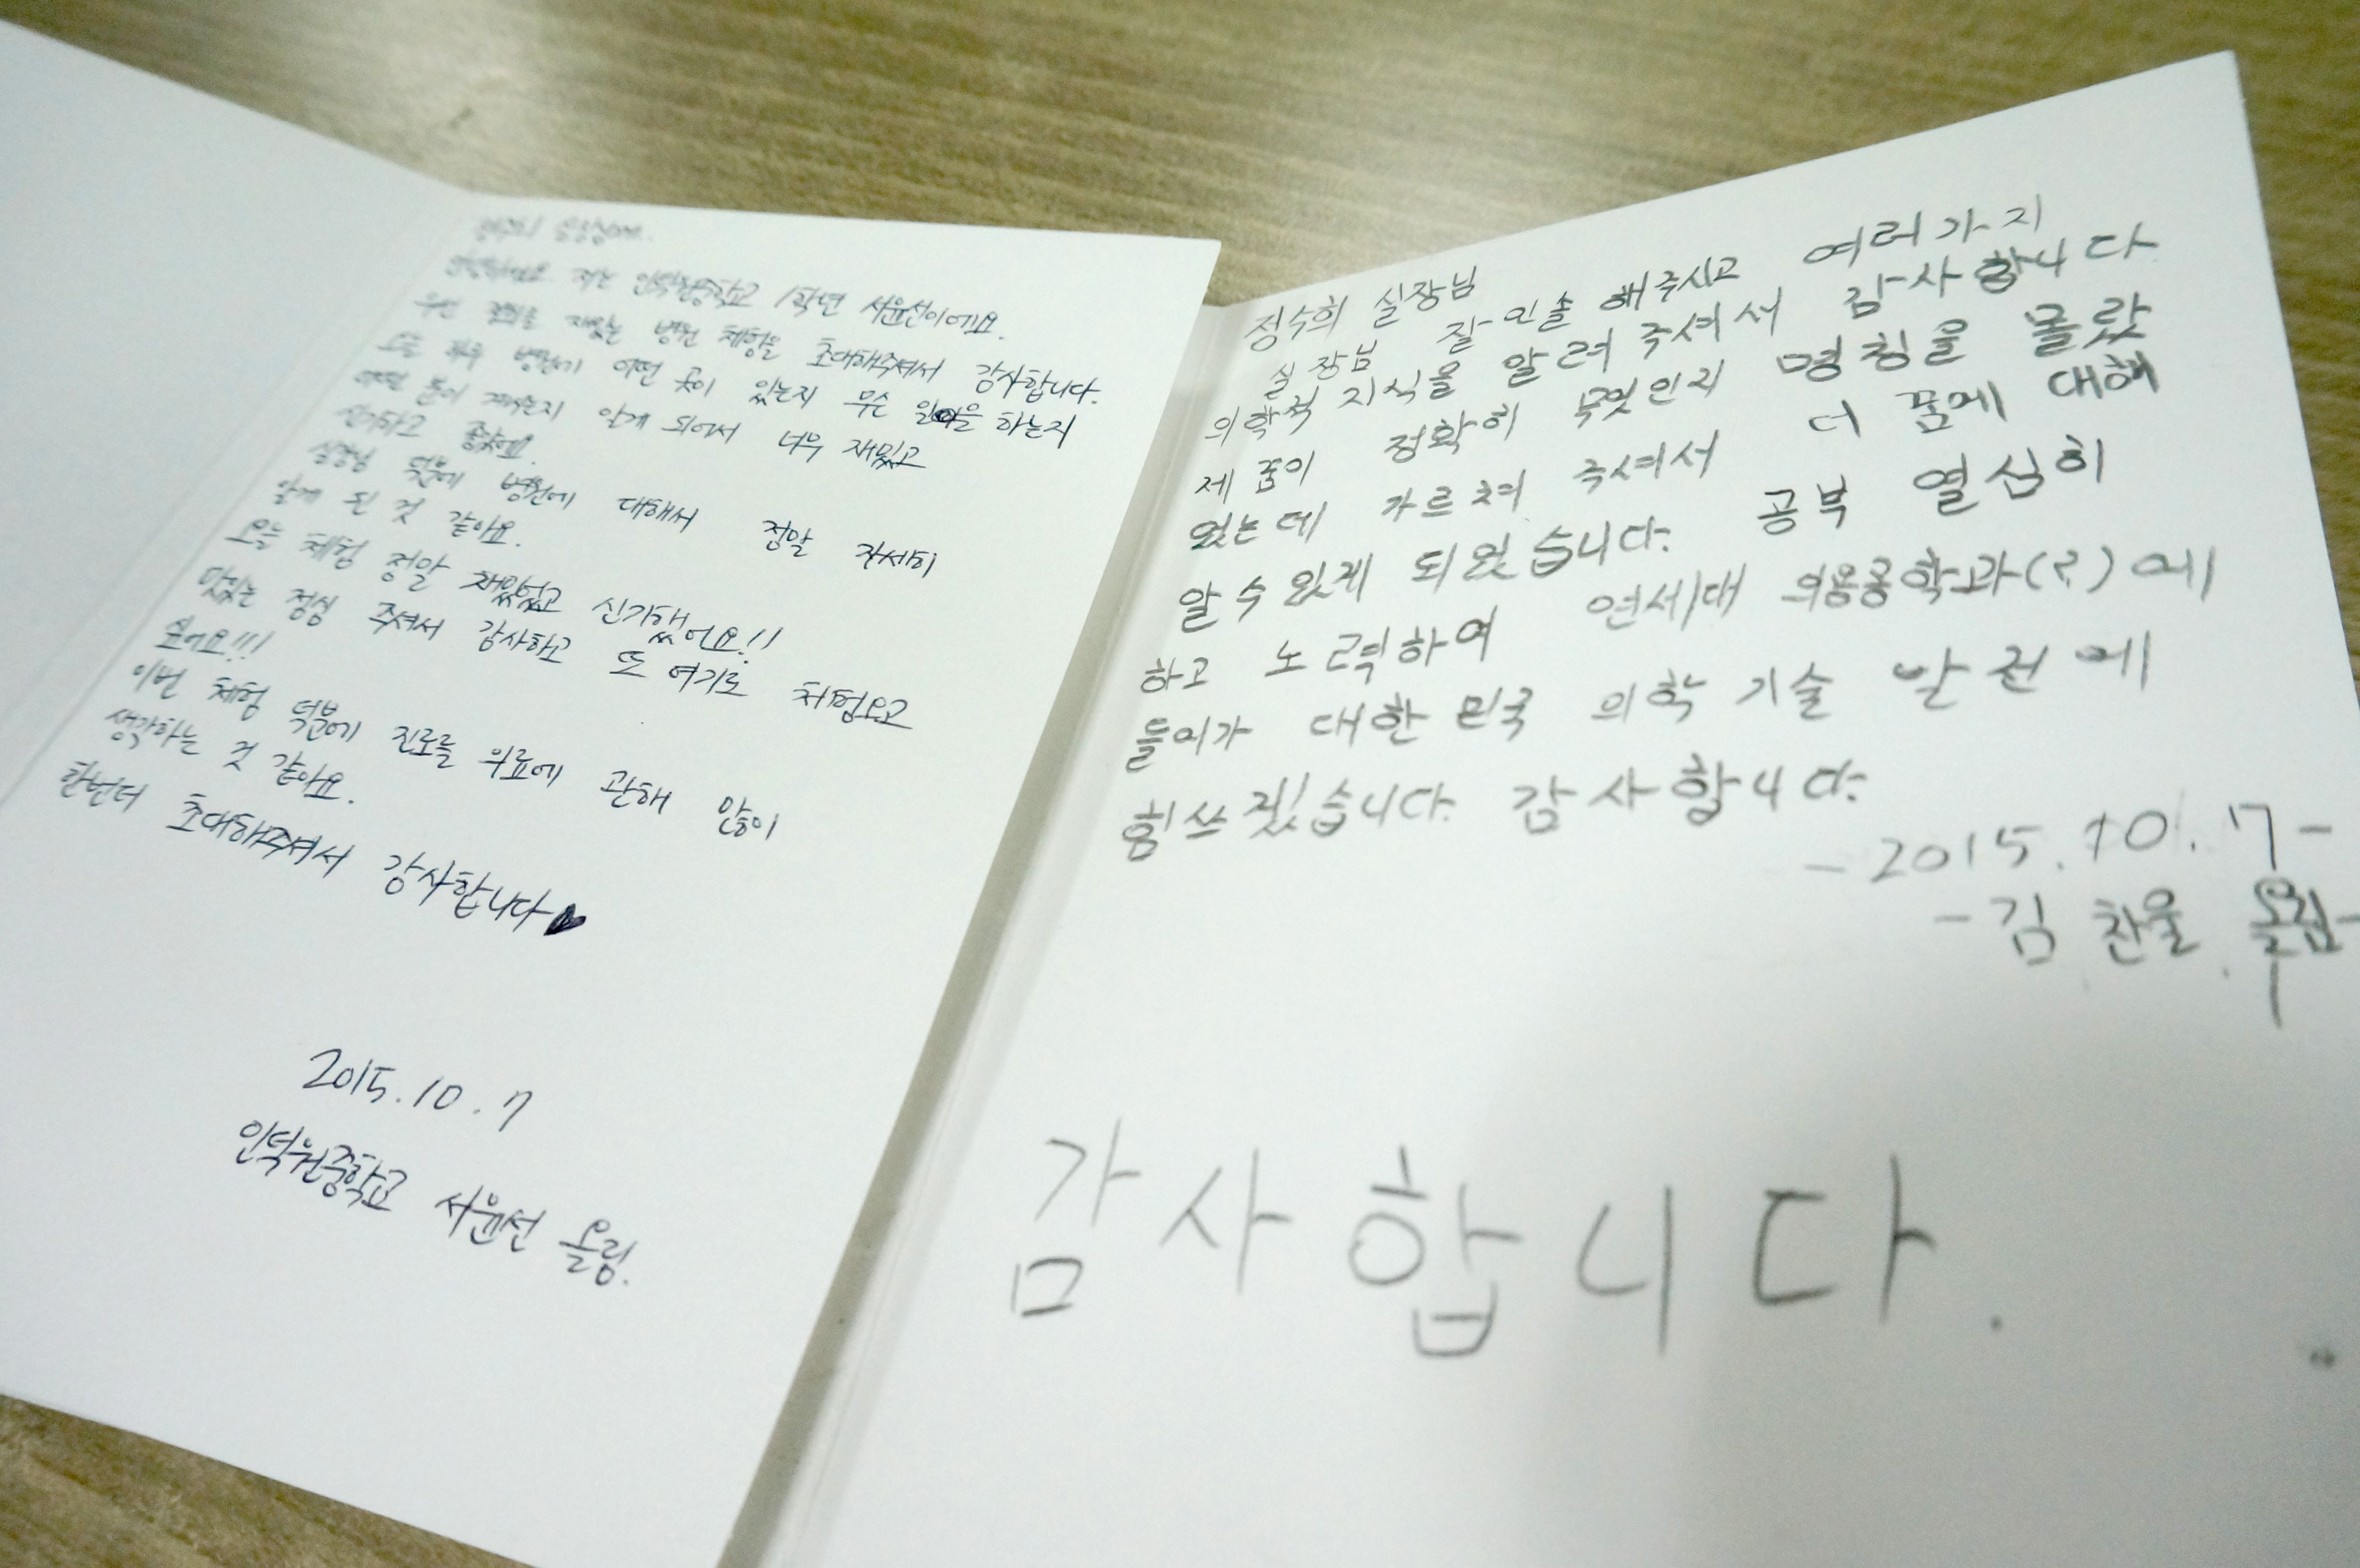 안녕하세요. 저는 인덕원중학교 1학년 서윤선이에요.
우선 저희를 재밌는 병원 체험을 초대해주셔서 감사합니다.
오늘 하루 병원에 어떤 곳이 있는지 무슨 일을 하는지
어떤 분이 계시는지 알게 되어서 너무 재밌고
신기하고 좋았어요.
실장님 덕분에 병원에 대해서 정말 자세히
알게 된 것 같아요.
오늘 체험 정말 재밌었고 신기했어요!!
맛있는 점심 주셔서 감사하고 또 여기로 체험오고
싶어요!!!
이번 체험 덕분에 진로를 의료에 관해 많이
생각하는 것 같아요.
한번더 초대해주셔서 감사합니다♥
2015.10.7
인덕원중학교 서윤선 올림.
정수희 실장님
실장님 잘 인솔 해주시고 여러가지
의학적 지식을 알려 주셔서 감사합니다
제 꿈이 정확히 무엇인지 명칭을 몰랐
었는데 가르쳐 주셔서 더 꿈에 대해
알 수 있게 되었습니다. 공부 열심히
하고 노력하여 연세대 의용공학과(?)에
들어가 대한민국 의학 기술 발전에
힘쓰겠습니다. 감사합니다.
-2015.10.7-
-김찬울 올림-
감사합니다.